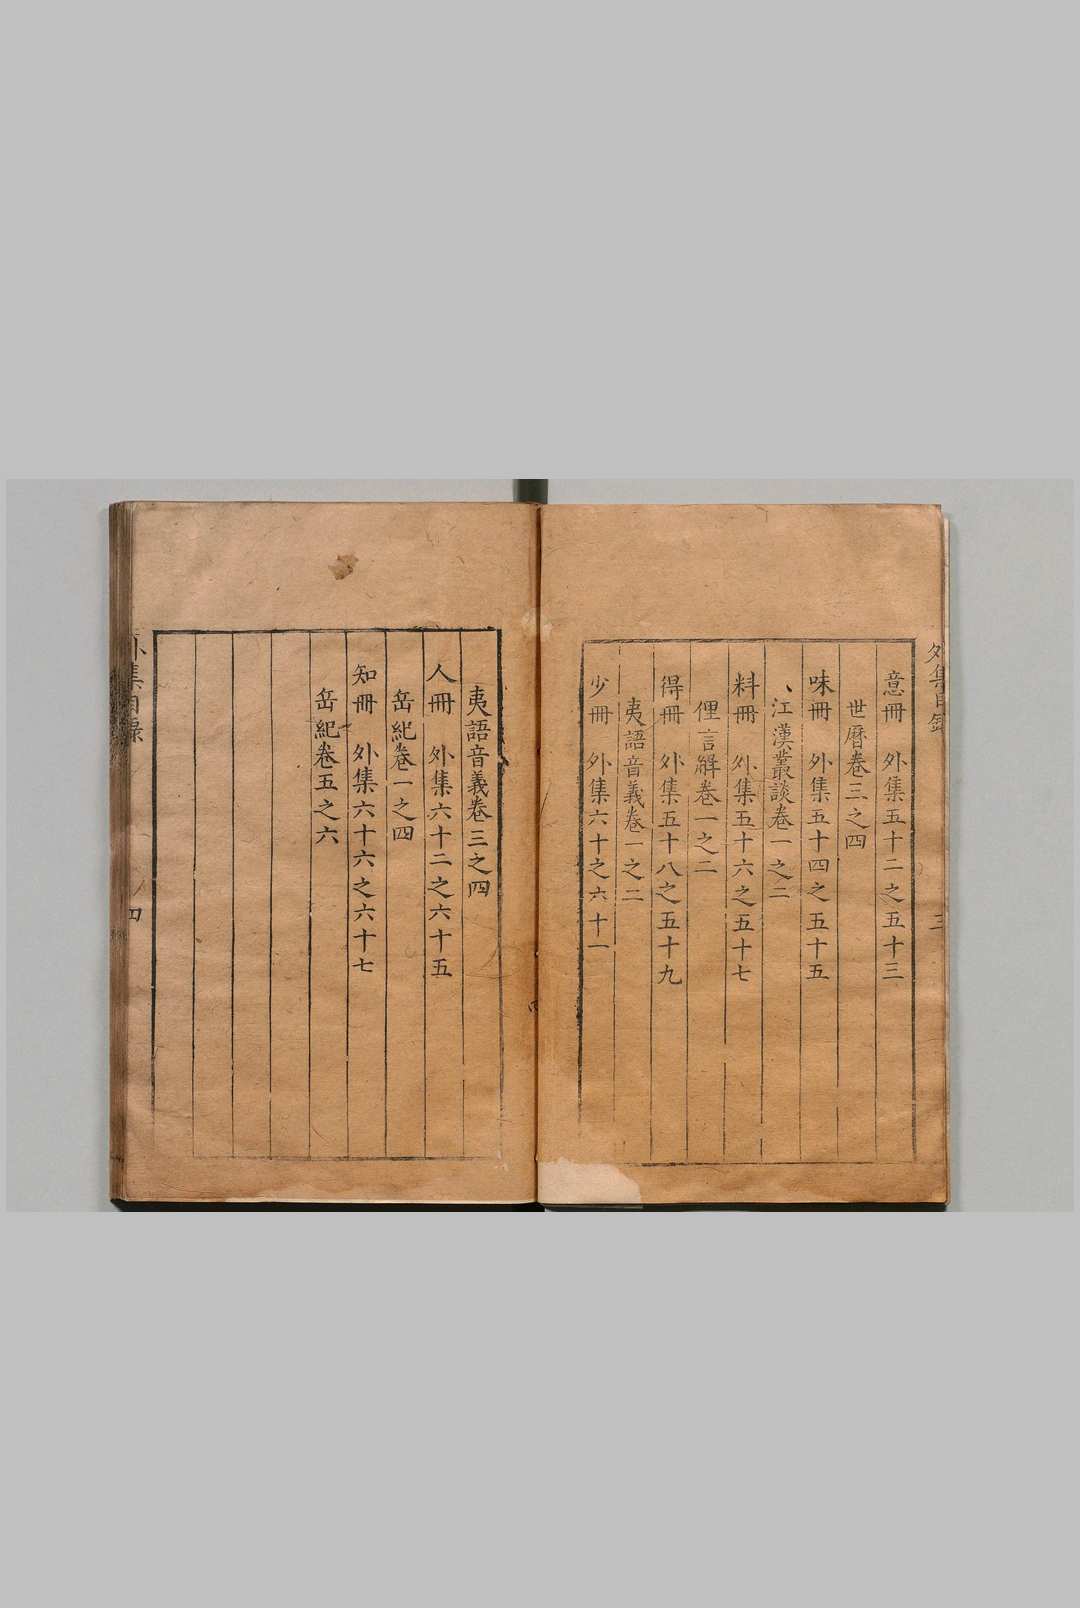 外集目錄
三
意冊　外集五十二之五十三
世曆卷三之四
味冊　外集五十四之五十五
江漢叢談卷一之二
料冊　外集五十六之五十七
俚言解卷一之二
得冊　外集五十八之五十九
夷語音義卷一之二
少冊　外集六十之六十一
夷語音義卷三之四
人冊　外集六十二之六十五
岳紀卷一之四
知冊　外集六十六之六十七
岳紀卷五之六
外集目錄
四